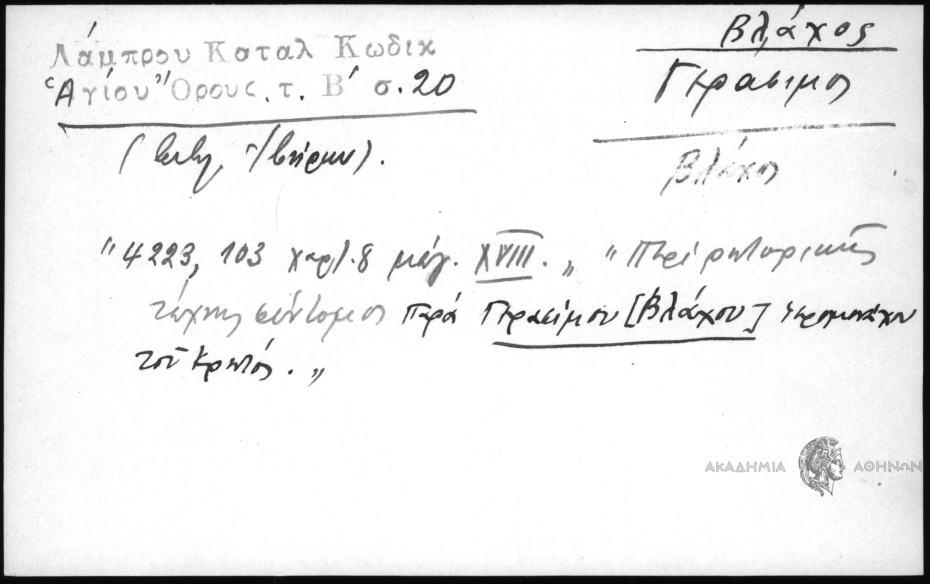 Λάμπρου Καταλ Κωδικ
Ἁγίου Ὄρους. τ. Β΄ σ. 20
Βλάχος
Γεράσιμος
Βλάχος
(
"4223, 103 χαρτ. 8 μεγ. XVIII. „ "Περί ρητορικῆς
τέχνης σύντομος παρά Γερασίμου [Βλάχου] ιερομονάχου
τοῦ Κρητός. „
ΑΚΑΔΗΜΙΑ ΑΘΗΝΩΝ